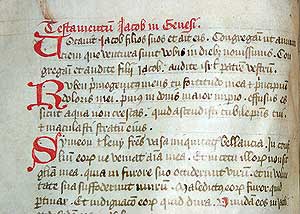 Testamentum Jacob in Genesi.
Vocauit Jacob filios suos et ait eis. Congregamini ut annun
tiem que uentura sunt uobis in diebus nouissimis. Con
gregamini et audite filij Jacob. audite israel patrem uestrum.
Ruben primogenitus meus tu fortitudo mea et principium
doloris mei. prior in donis maior imperio. effusus es
sicut aqua non crescas. quia ascendisti cubile patris tui
et maculasti stratum eius.
Symeon et leui fratres uasa iniquitatis bellancia. In consi
lium eorum ne ueniat anima mea. Et in cetu illorum non sit
gloria mea. quia in furore suo occiderunt uirum. et in uolun
tate sua suffoderunt murum. Maledictus eorum furor quia
pertinax. Et indignatio eorum quia dura.